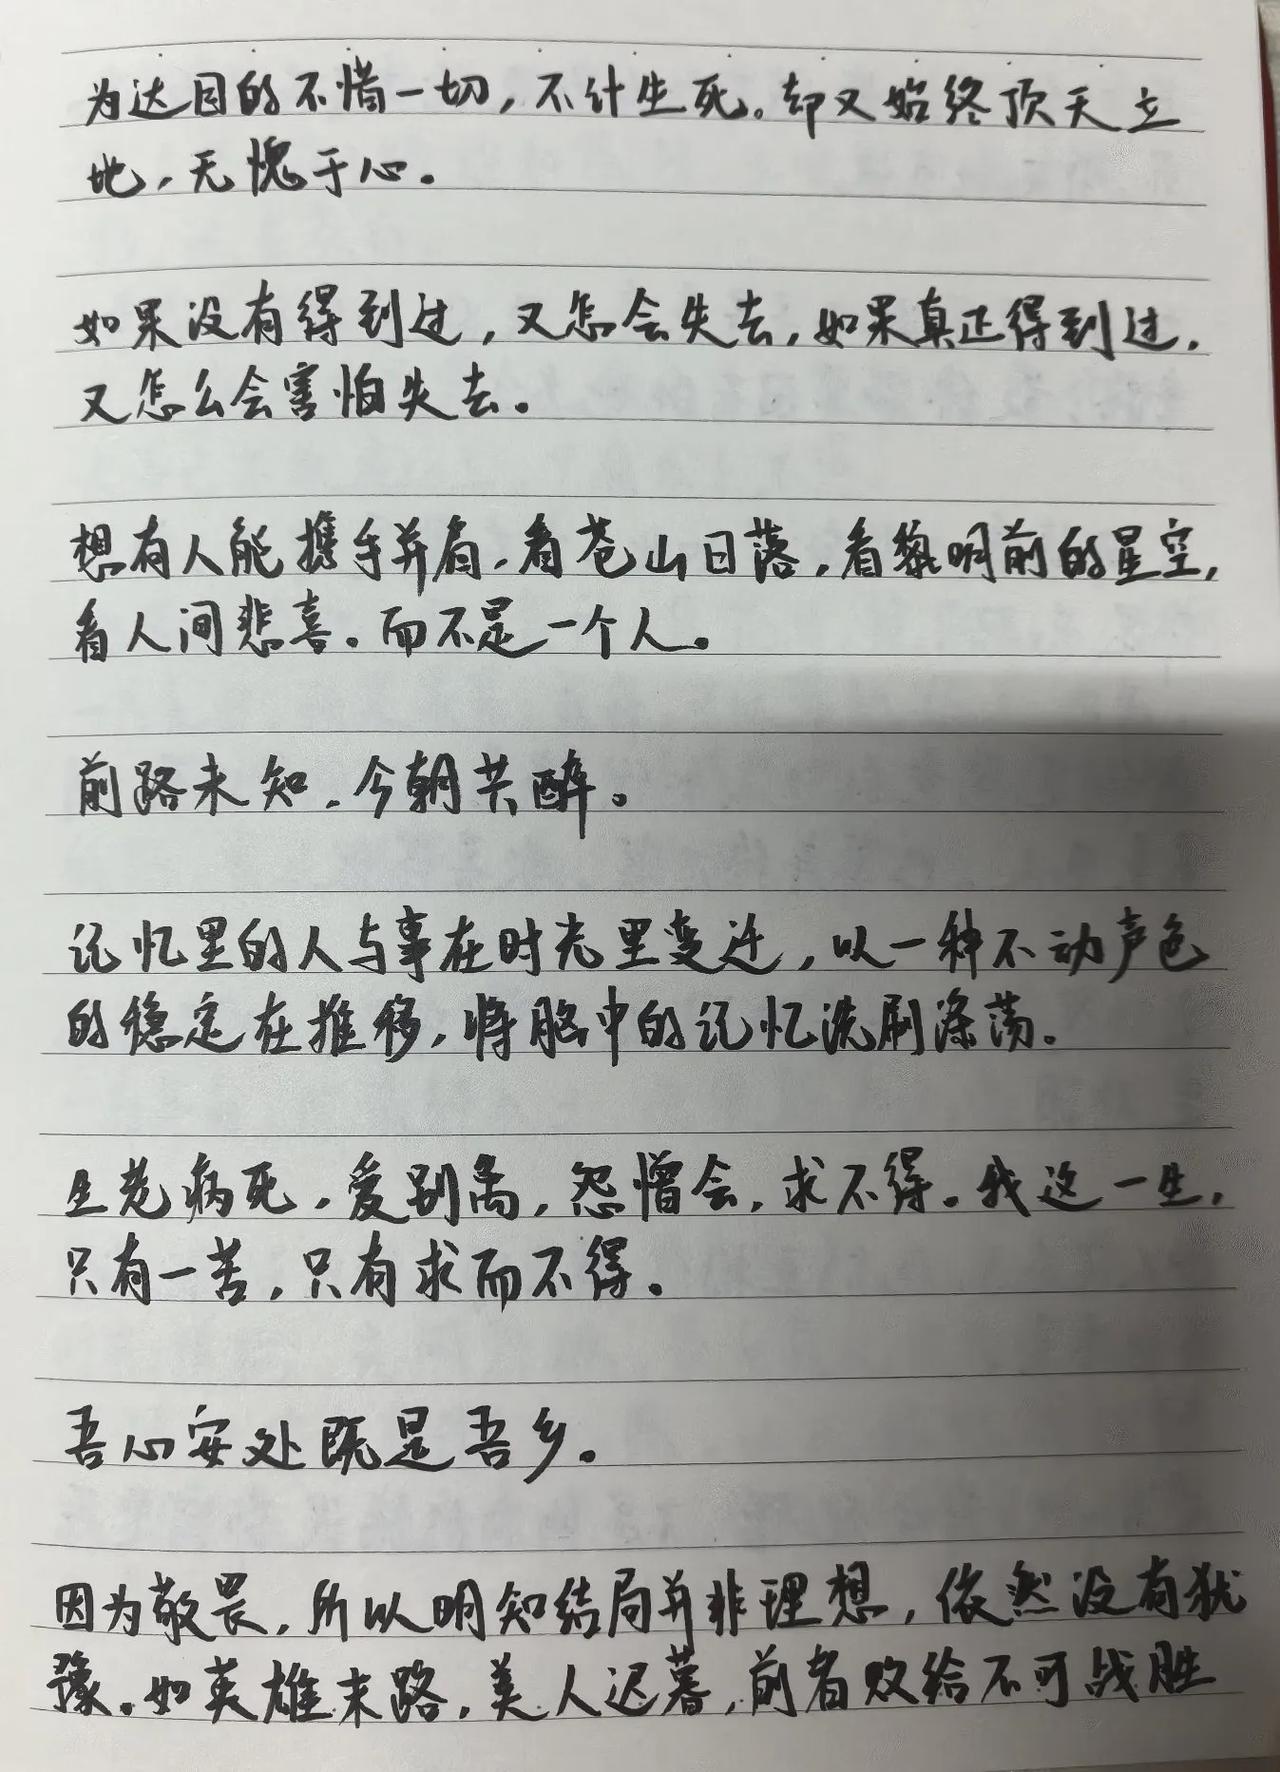 为达目的不惜一切，不计生死。却又始终顶天立
地，无愧于心。
如果没有得到过，又怎会失去，如果真正得到过，
又怎么会害怕失去。
想有人能携手并肩，看苍山日落，看黎明前的星空，
看人间悲喜。而不是一个人。
前路未知，今朝共醉。
记忆里的人与事在时光里变迁，以一种不动声色
的稳定在推移，将脑中的记忆洗刷涤荡。
生老病死，爱别离，怨憎会，求不得。我这一生，
只有一苦，只有求而不得。
吾心安处既是吾乡。
因为敬畏，所以明知结局并非理想，依然没有犹
豫。如英雄末路，美人迟暮，前者败给不可战胜